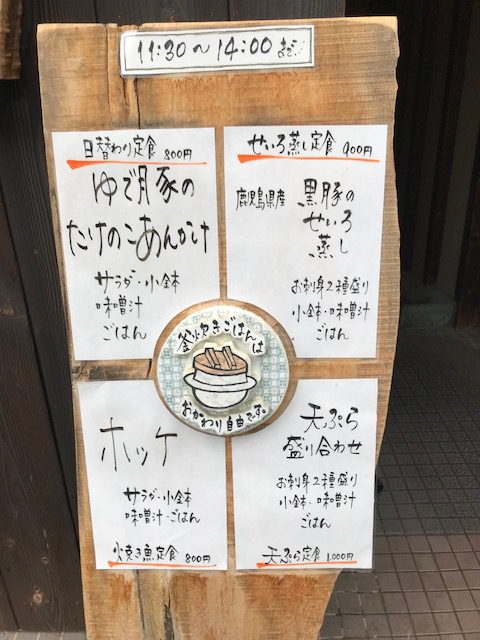 11:30～14:00まで
日替わり定食 800円
ゆで豚の
たけのこあんかけ
サラダ・小鉢
味噌汁
ごはん
せいろ蒸し定食 900円
鹿児島県産
黒豚の
せいろ
蒸し
お刺身2種盛り
小鉢・味噌汁
ごはん
釜炊きごはんは
おかわり自由です。
ホッケ
サラダ・小鉢
味噌汁・ごはん
焼き魚定食 800円
天ぷら
盛り合わせ
お刺身2種盛り
小鉢・味噌汁
ごはん
天ぷら定食 1,000円